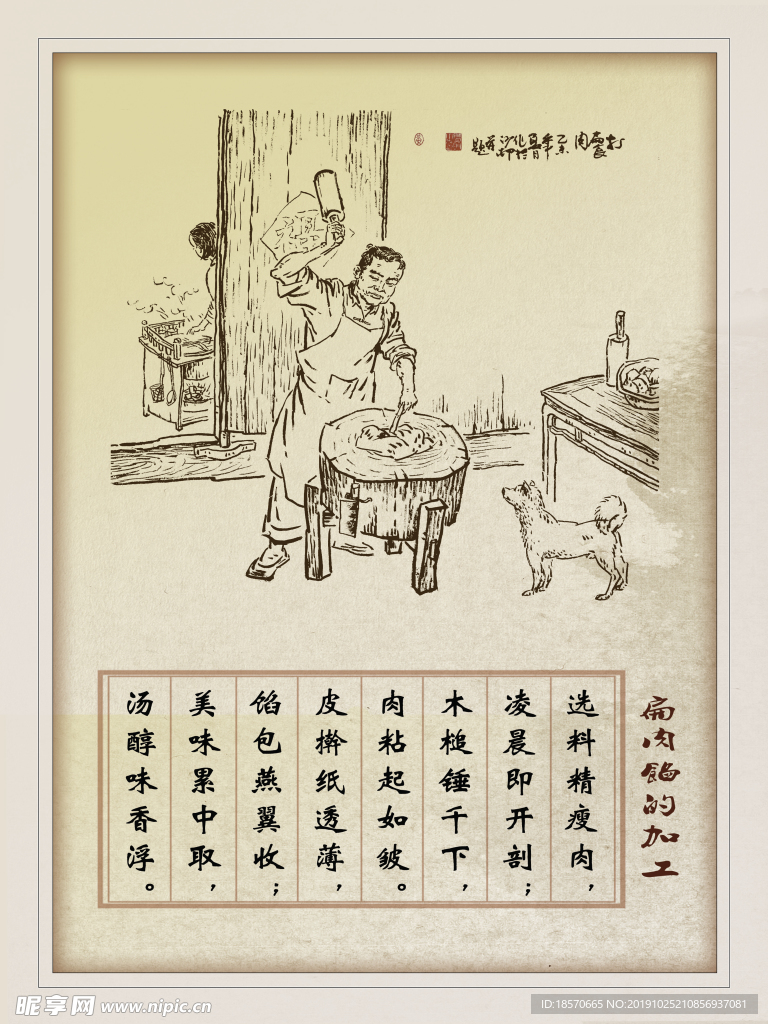 扁肉馅的加工
选料精瘦肉，
凌晨即开剖；
木槌锤千下，
肉粘起如皱。
皮擀纸透薄，
馅包燕翼收；
美味累中取，
汤醇味香浮。
昵享网 www.nipic.cn
ID:18570665 NO:20191025210856937081